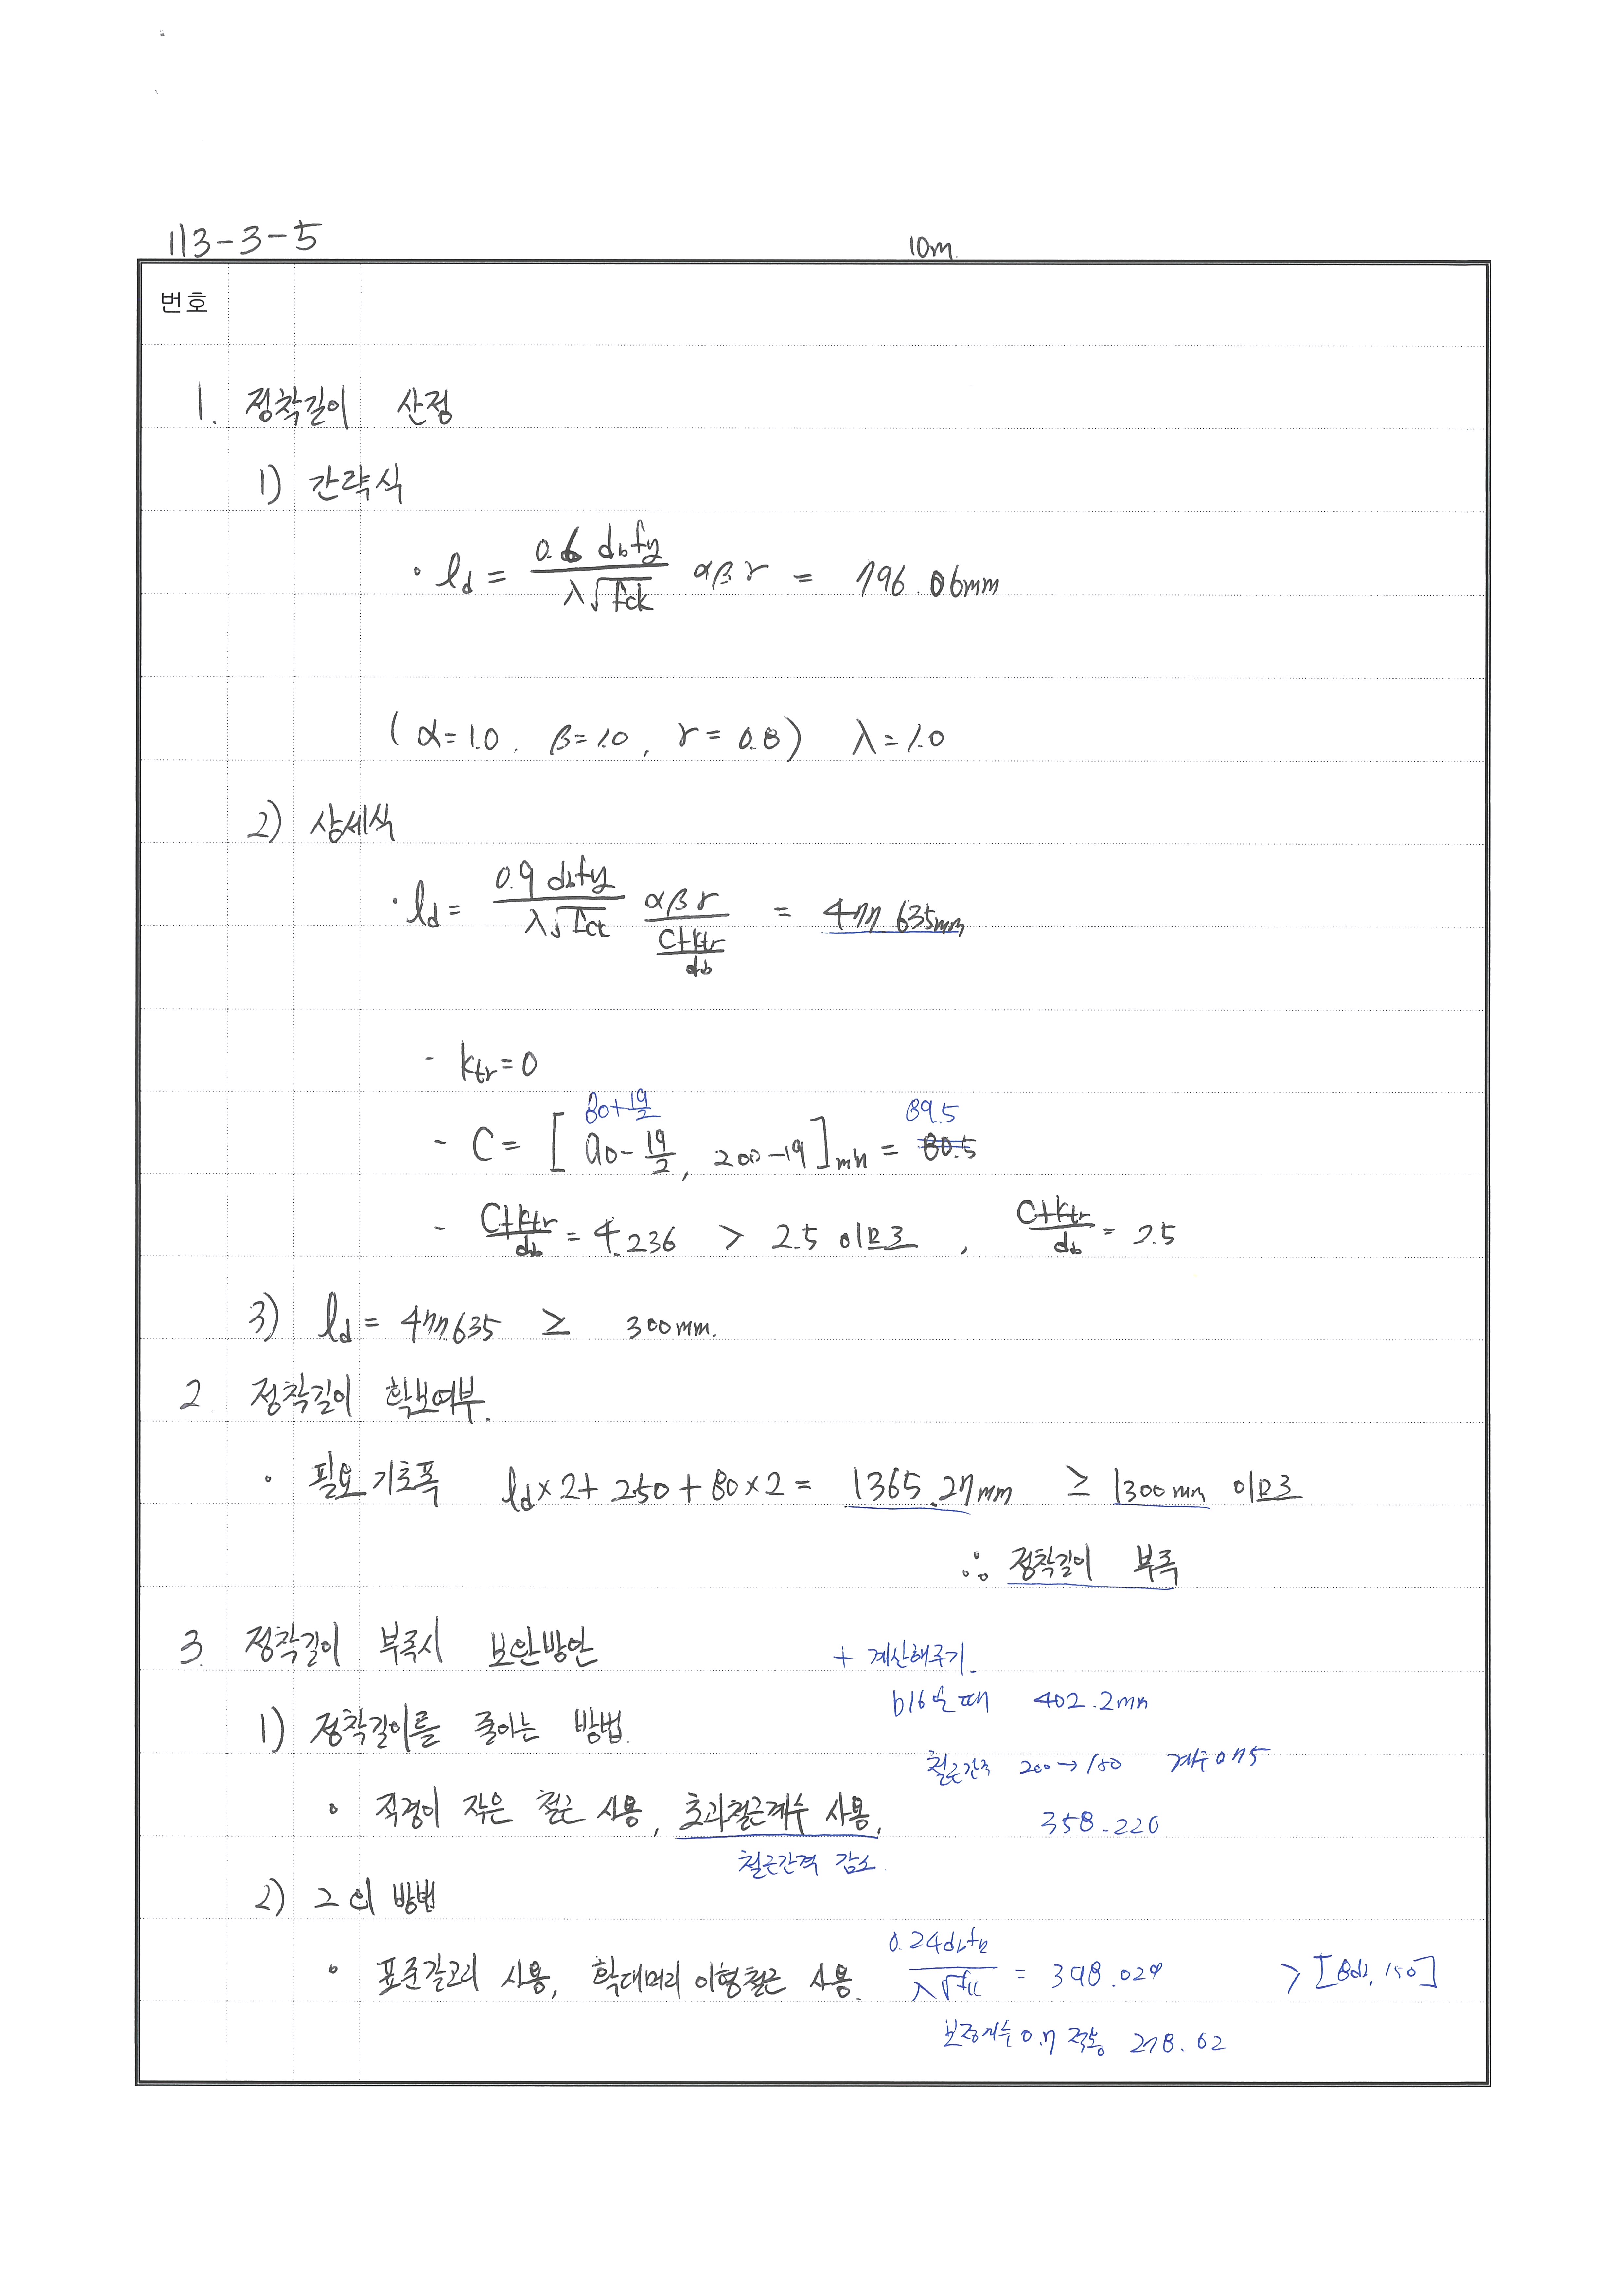 113-3-5
10m.
번호
1. 정착길이 산정
1) 간략식
• ld = 0.6 db fy / λ√fck αβγ = 796.06mm
( α=1.0, β=1.0, γ=0.8 ) λ=1.0
2) 상세식
• ld = 0.9 db fy / λ√fck αβγ / (C+ktr / db) = 477.635mm
- ktr=0
80+19/2 89.5
- C= [ 90-19/2, 200-19 ]min = 80.5
- C+ktr / db = 4.236 > 2.5 이므로, C+ktr / db = 2.5
3) ld = 477.635 ≥ 300mm.
2. 정착길이 확보여부.
• 필요 기초폭 ld×2+250+80×2 = 1365.27mm ≥ 1300mm 이므로
∴ 정착길이 부족
3. 정착길이 부족시 보완방안
+ 계산해주기.
D16일 때 402.2mm
1) 정착길이를 줄이는 방법.
철근간격 200→150 계수 0.75
• 직경이 작은 철근 사용, 초과철근계수 사용,
358.220
철근간격 감소.
2) 그 외 방법
• 표준갈고리 사용, 확대머리 이형철근 사용.
0.24db fy / λ√fck = 398.029 > [8db, 150]
보정계수 0.7 적용 278.62